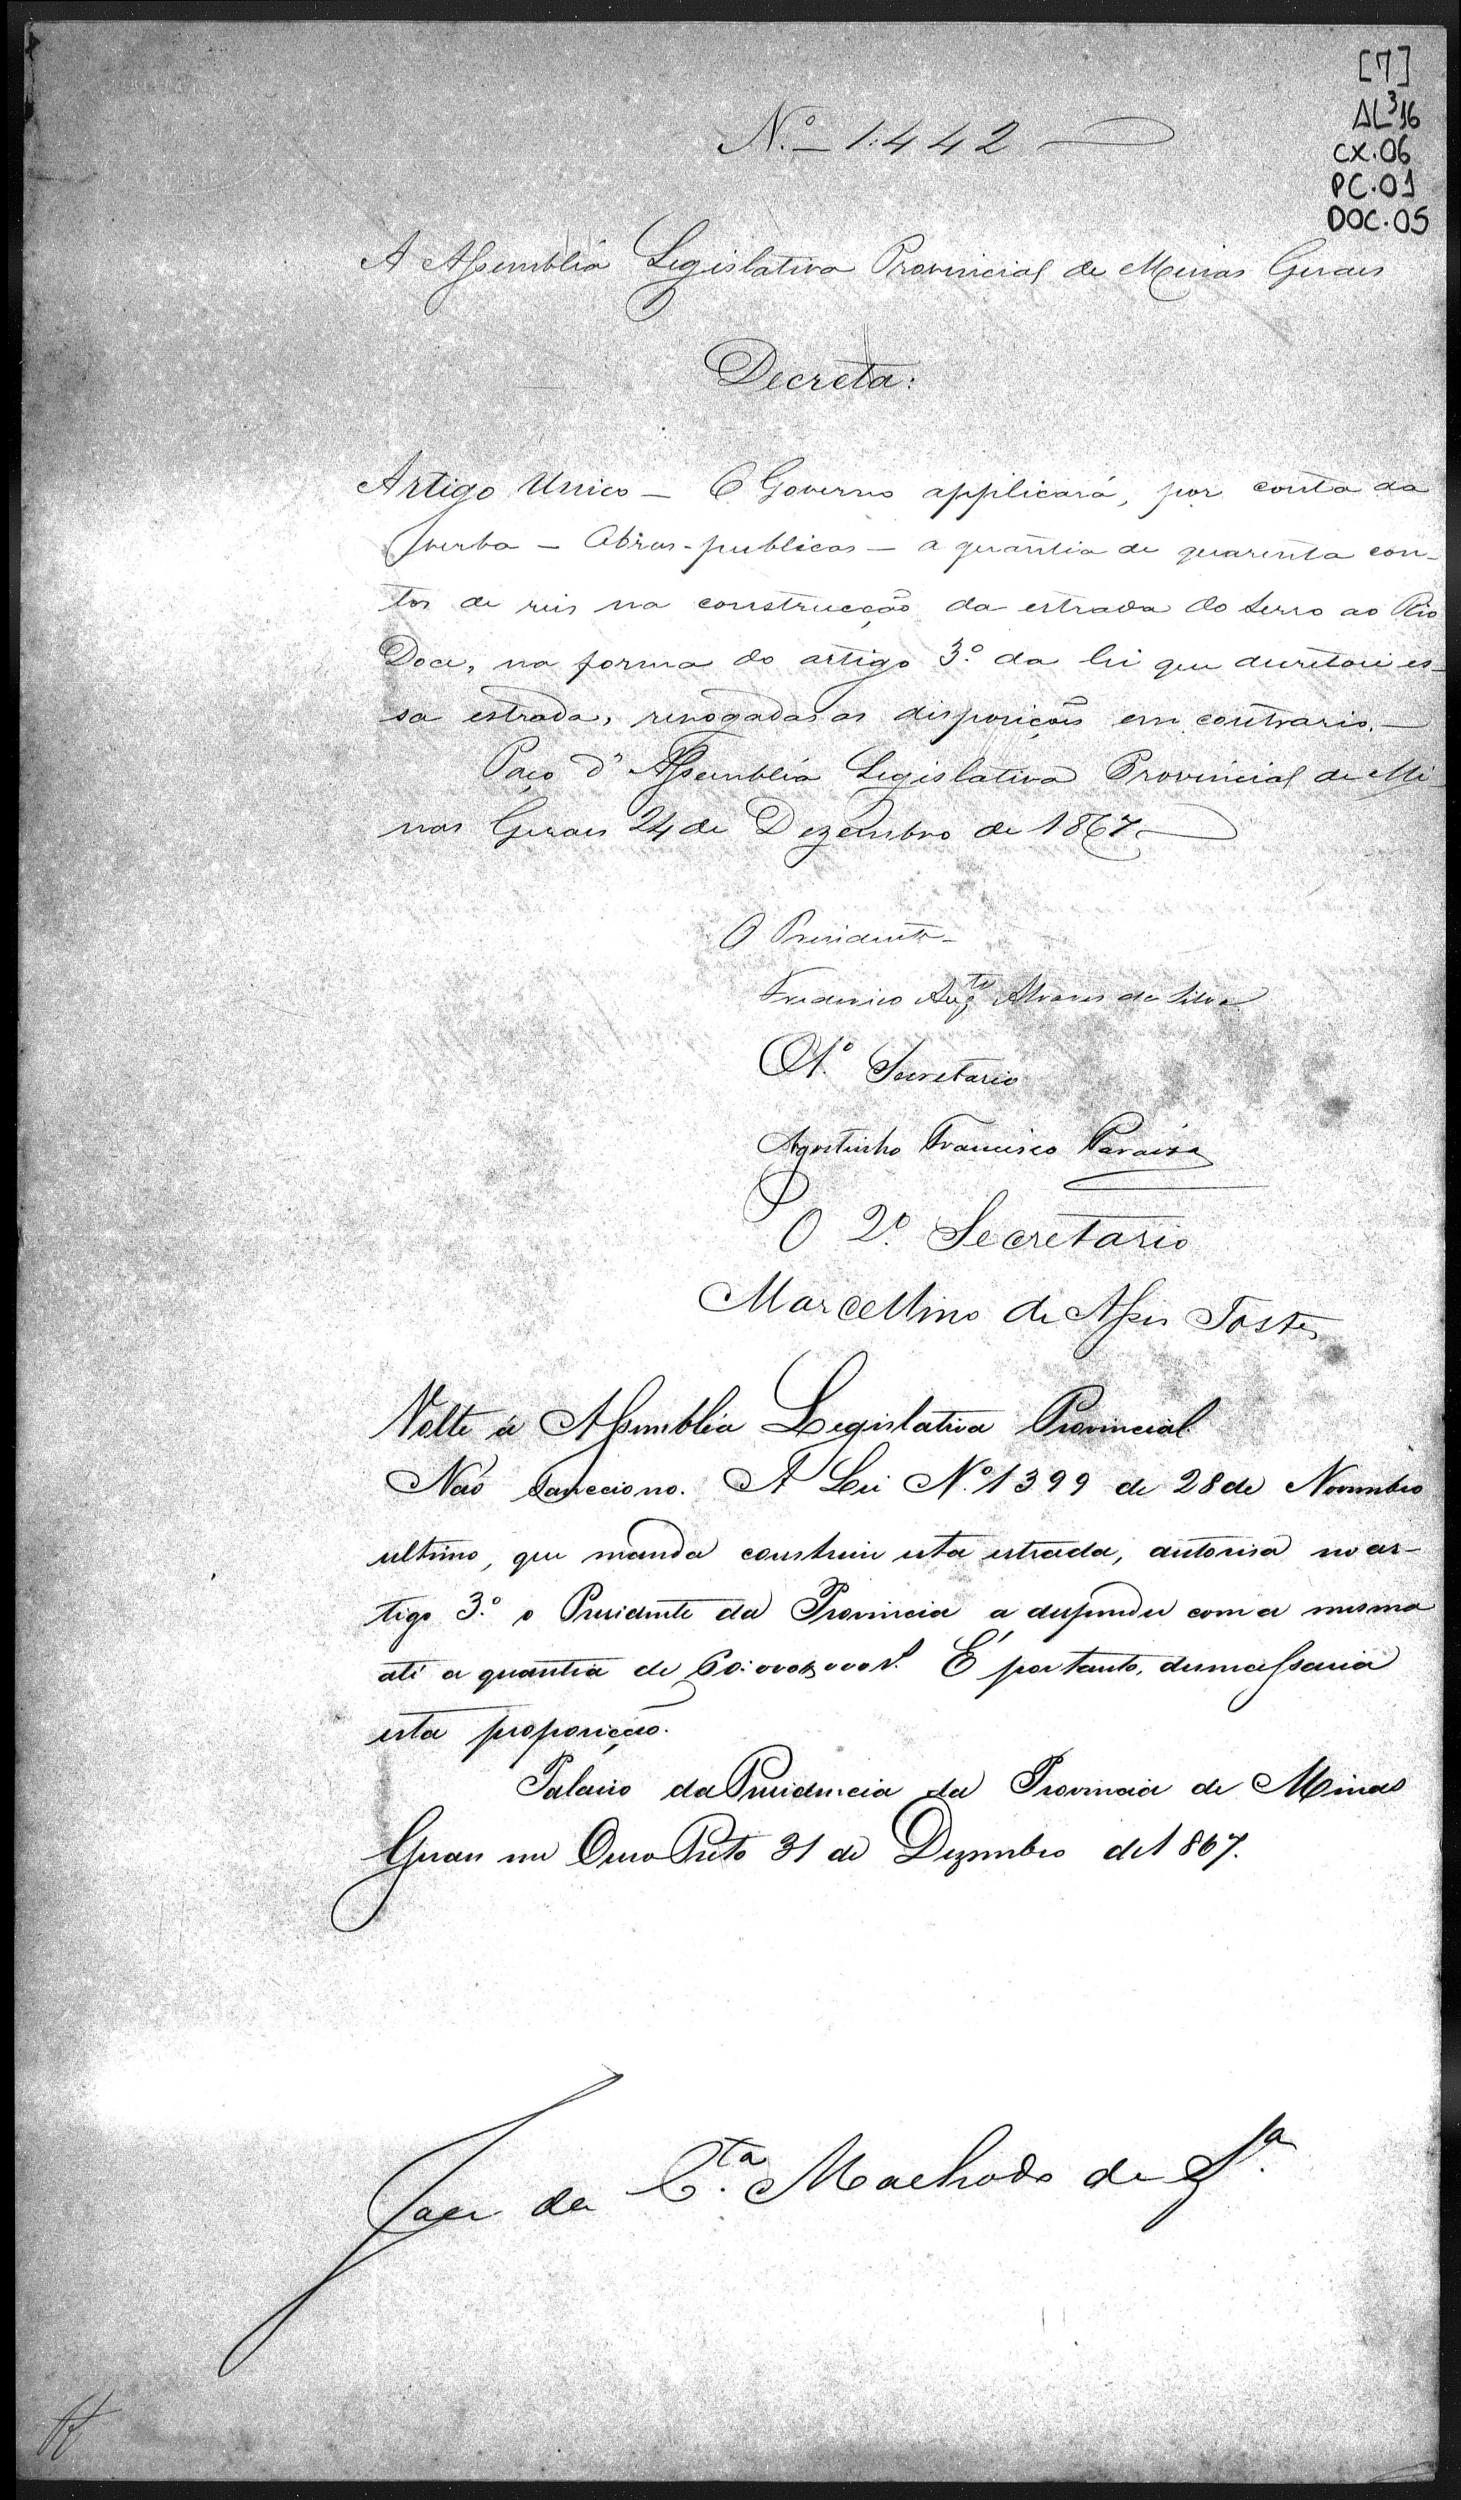 [7]
AL³16
CX.06
PC.01
DOC.05
N.º – 1:442
A Assembléa Legislativa Provincial de Minas Geraes
Decreta:
Artigo Unico – O Governo applicará, por conta da
verba – Obras-publicas – a quantia de quarenta con-
tos de reis na construcção da estrada do Serro ao Rio
Doce, na forma do artigo 3.º da lei que decretou es-
sa estrada, revogadas as disposições em contrario. –
Paço d'Assembléa Legislativa Provincial de Mi-
nas Geraes 24 de Dezembro de 1867.
O Presidente –
Frederico Aug.to Alvares da Silva
O 1.º Secretario
Agostinho Francisco Paraiso
O 2.º Secretario
Marcellino de Assis Tostes
Volte á Assembléa Legislativa Provincial
Não sancciono. A Lei N.º 1399 de 28 de Novembro
ultimo, que manda construir esta estrada, autorisa no ar-
tigo 3.º o Presidente da Provincia a despender com a mesma
até a quantia de 60:000$000 rs. É portanto, desnecessaria
esta proposição.
Palacio da Presidencia da Provincia de Minas
Geraes em Ouro Preto 31 de Dezembro de 1867.
da C.ta Machado de S.a